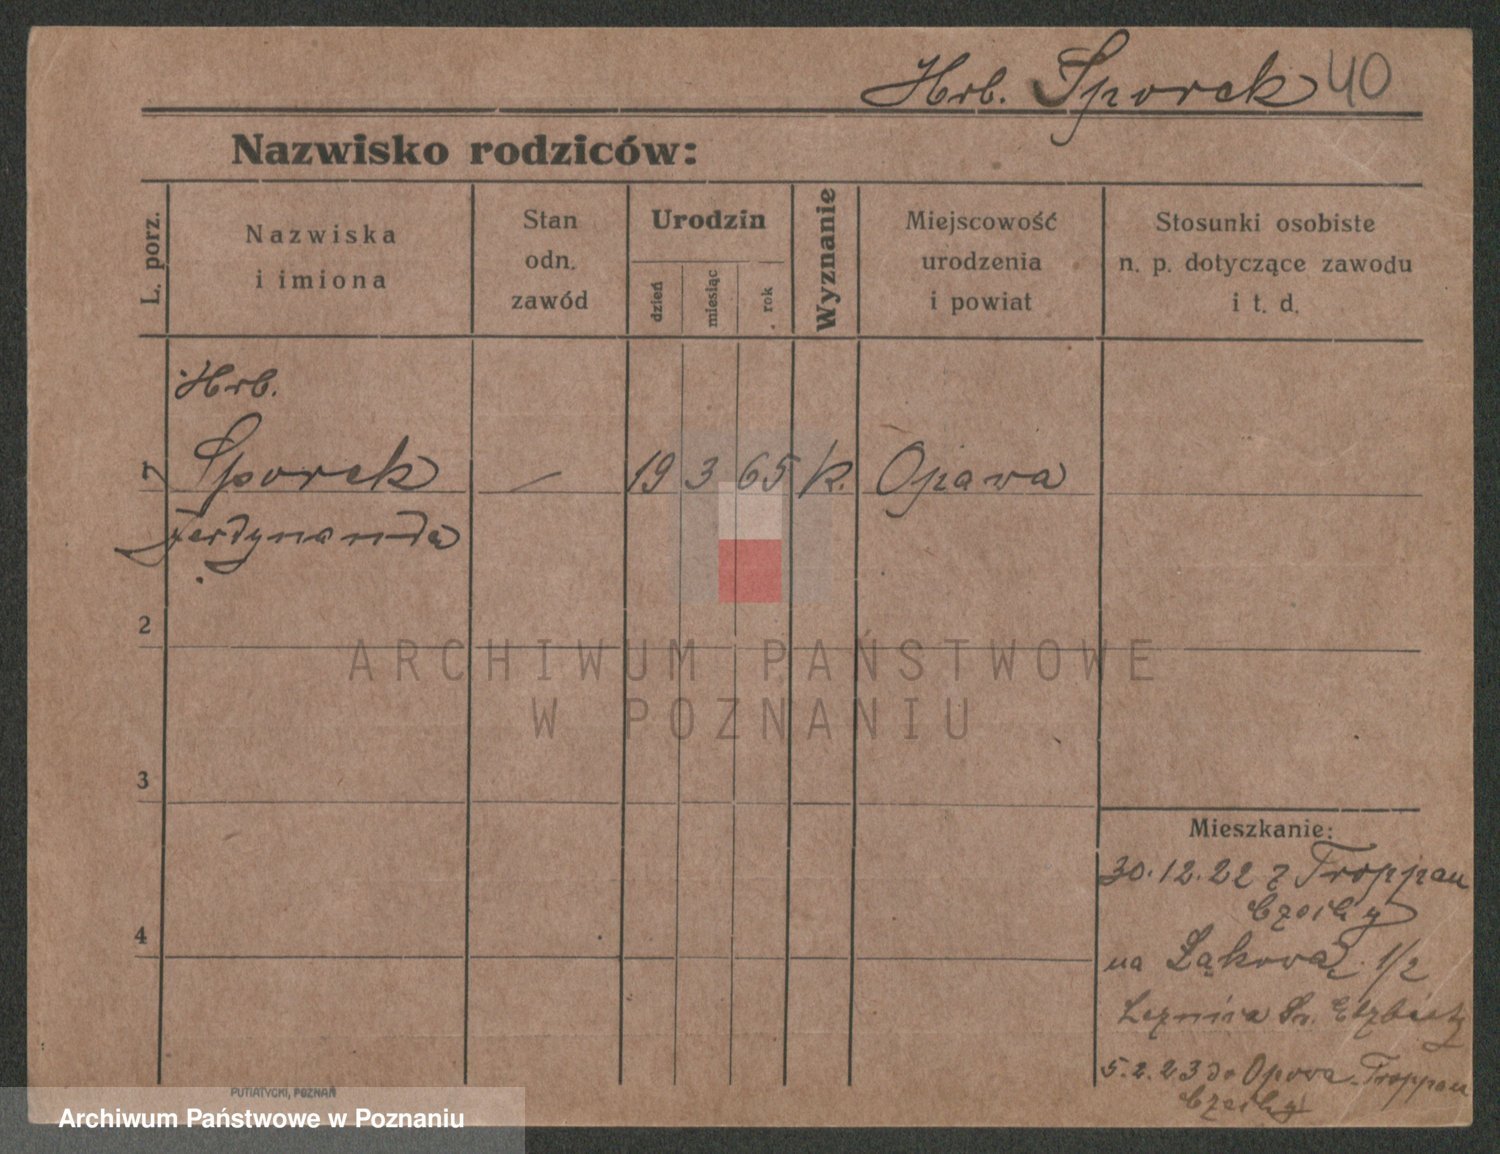 Hrb. Sporek 40
Nazwisko rodziców:
L. porz.
Nazwiska
i imiona
Stan
odn.
zawód
Urodzin
dzień
miesiąc
rok
Wyznanie
Miejscowość
urodzenia
i powiat
Stosunki osobiste
n. p. dotyczące zawodu
i t. d.
Hrb.
1 Sporek — 19 3 65 k. Opawa
Ferdynanda
2
3
4
Mieszkanie:
30.12.22 z Troppau
Czechy
na Łąkowa 1/2
Lecznica Św. Elżbiety
5.2.23 do Opawa-Troppau
Czechy
PUTIATYCKI, POZNAŃ
ARCHIWUM PAŃSTWOWE
W POZNANIU
Archiwum Państwowe w Poznaniu